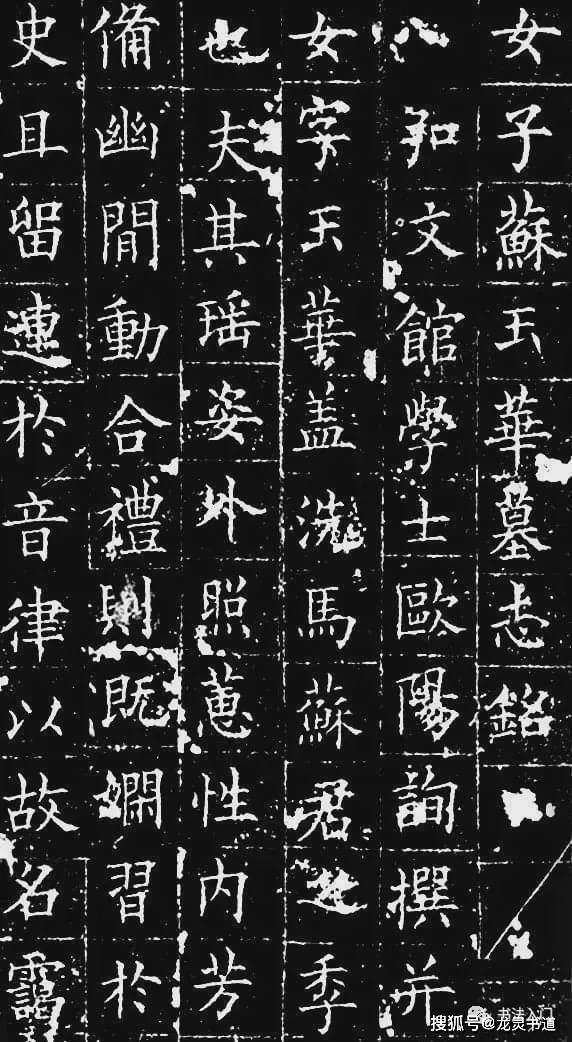 女子蘇玉華墓志銘
文館學士歐陽詢撰并
女字玉華盖洗馬蘇君之季
也夫其瑶姿外照蕙性内芳
備幽間動合禮則既嫻習扵
史且留連扵音律以故名靄
书法入门
搜狐号@龙灵书道